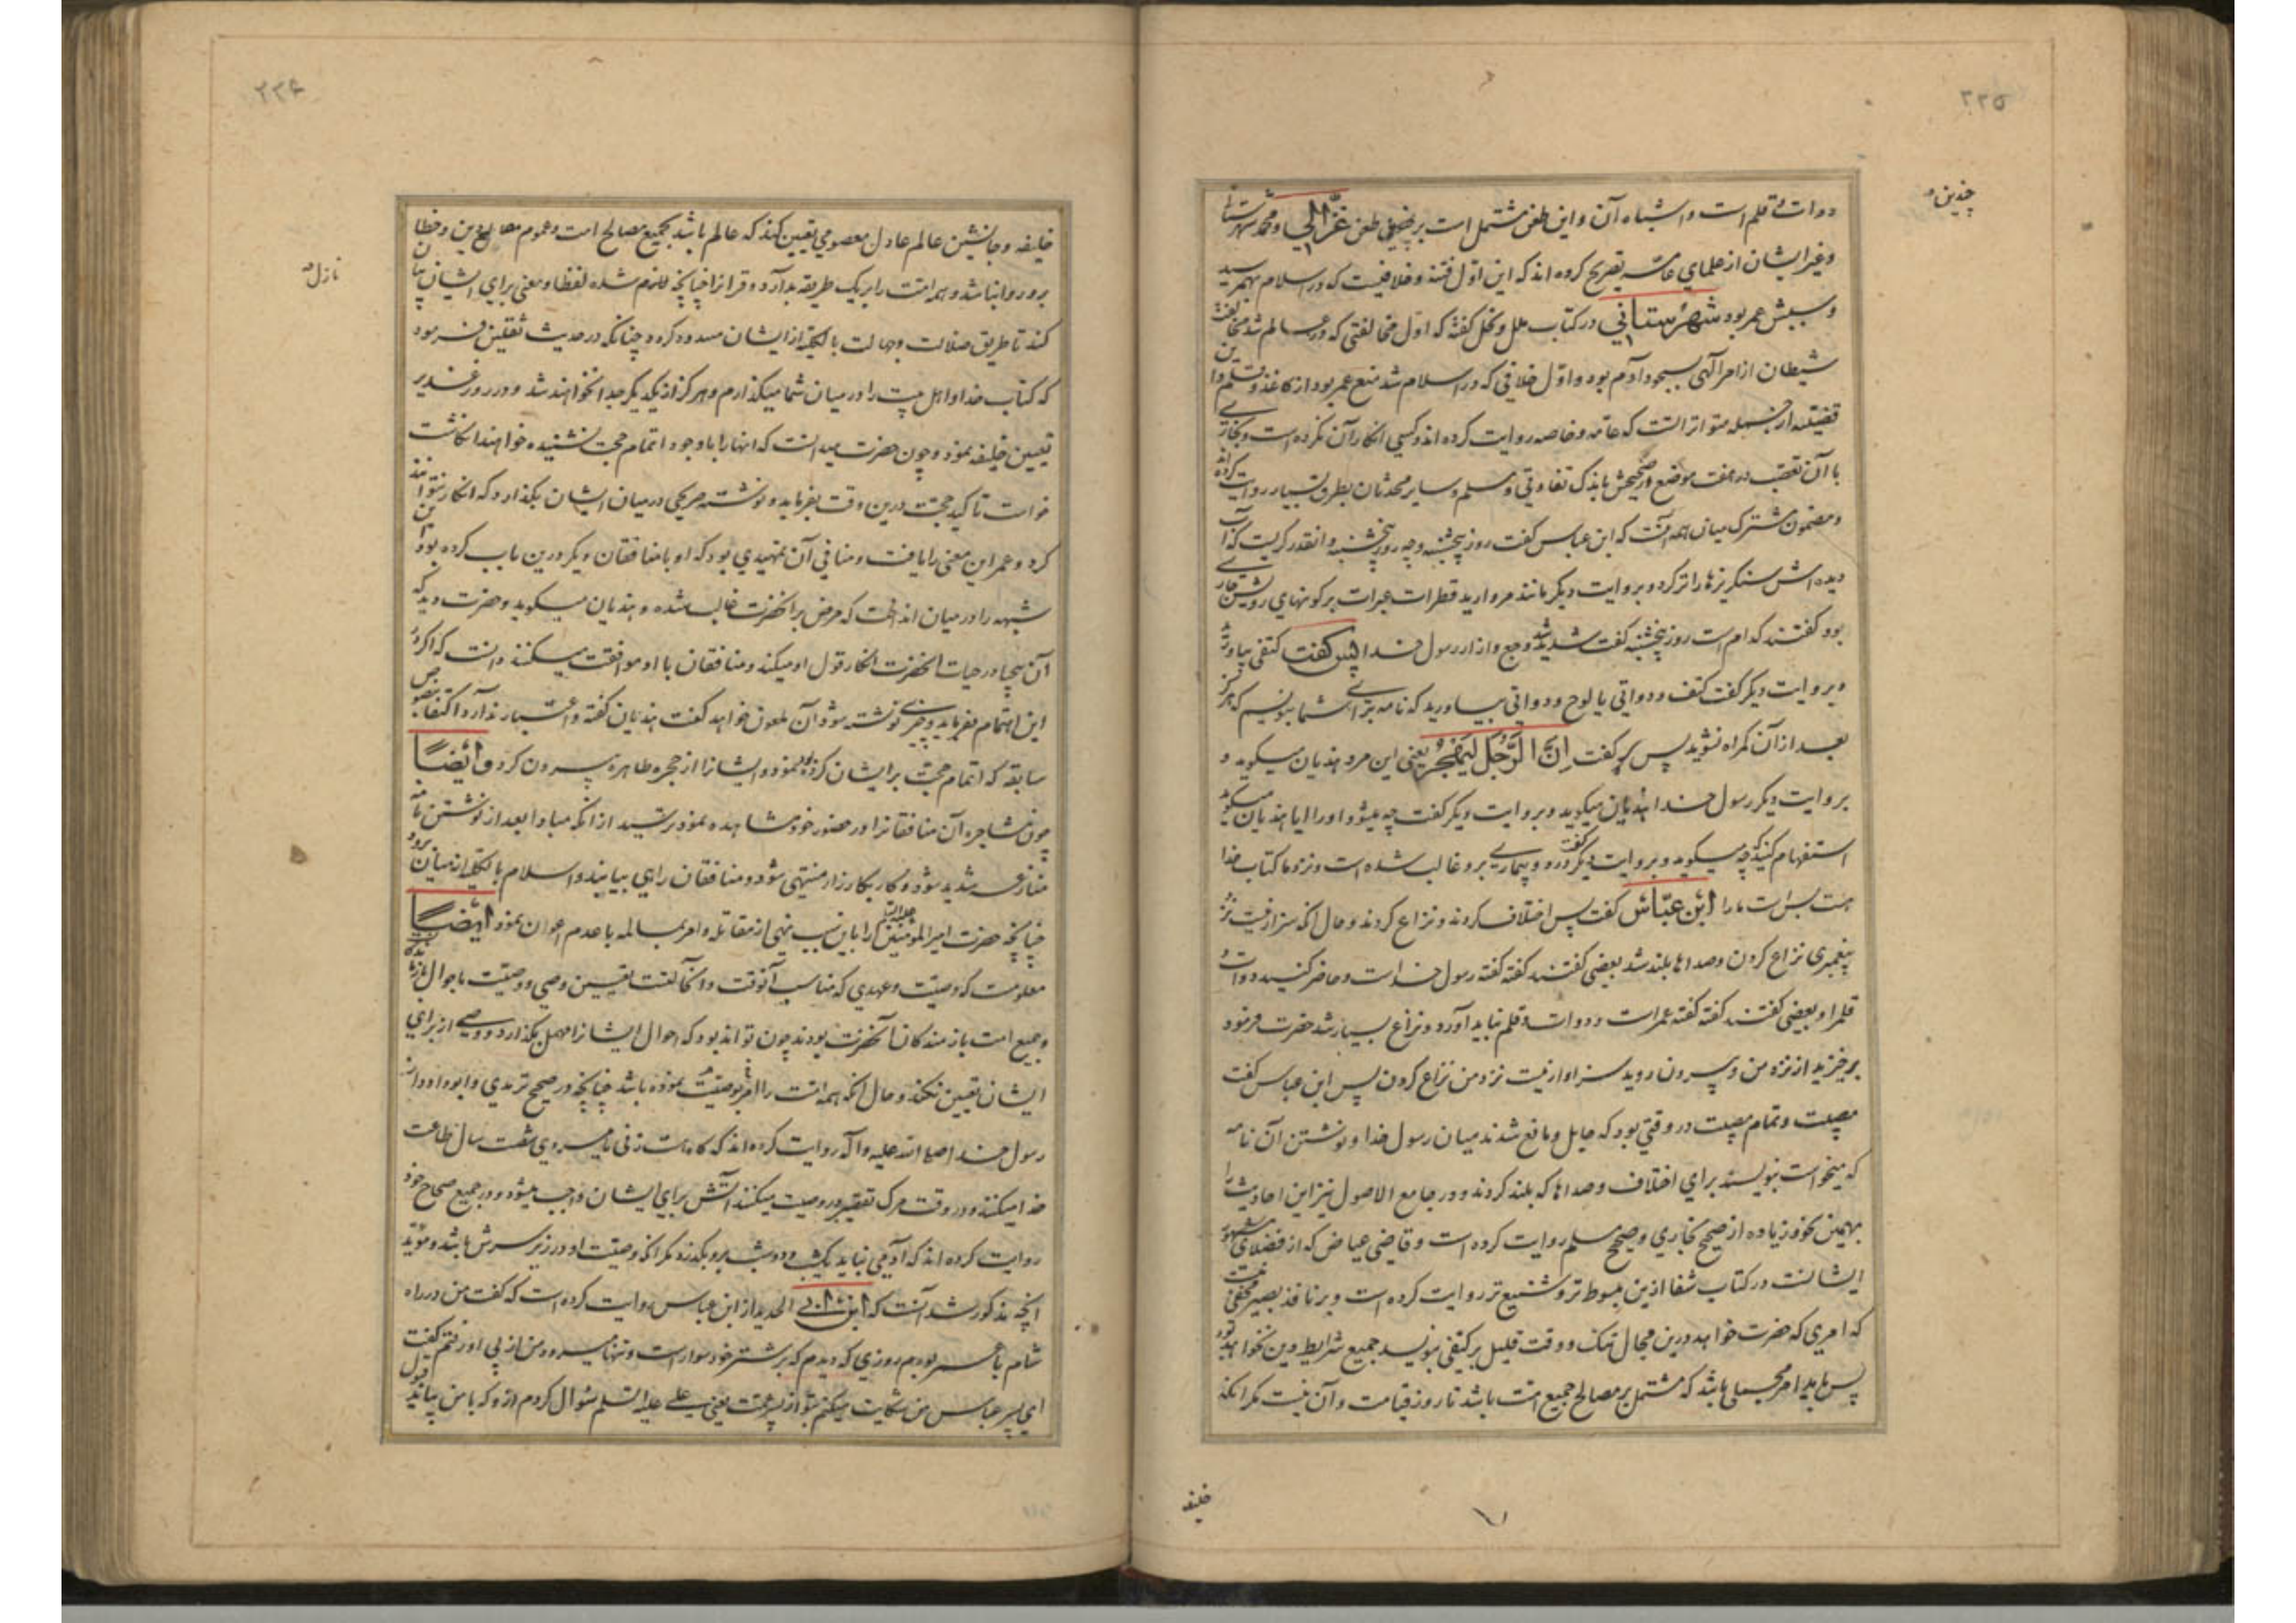 ۲۲۵
چندین
دوات و قلم است و اشباه آن و این طعن مشتمل است بر چندین طعن غزّالی و محمد شهرستا
وغیر ایشان از علمای عامّه تصریح کرده اند که این اوّل فتنه و خلافیست که در اسلام بهمرسید
و سببش عمر بود شهرستانی در کتاب ملل و نحل گفته که اوّل مخالفتی که در عالم شد مخالفت
شیطان از امر الهی بسجود آدم بود و اوّل خلافی که در اسلام شد منع عمر بود از کاغذ و قلم و این
قضیّه از جمله متواتراتست که عامّه و خاصه روایت کرده اند و کسی انکار آن نکرده است و بخاری
با آن تعصّب در هفت موضع از صحیحش باندک تفاوتی و مسلم و سایر محدثان بطرق بسیار روایت کرده اند
و مضمون مشترک میان همه آنست که ابن عباس گفت روز پنجشنبه و چه روز پنجشنبه و انقدر گریست که آب
دیده اش سنگریزها را تر کرد و بروایت دیگر مانند مروارید قطرات عبرات بر گونهای رویش جاری
بود گفتند کدام است روز پنجشنبه گفت شدید شد وجع و آزار رسول خدا پس گفت کتفی بیاورید
و بروایت دیگر گفت کتف و دواتی یا لوح و دواتی بیاورید که نامه برای شما بنویسم که هرگز
بعد از آن گمراه نشوید پس گفت اِنَّ الرَّجُلَ لَیَهْجُرُ یعنی این مرد هذیان میگوید و
بروایت دیگر رسول خدا هذیان میگوید و بروایت دیگر گفت چه میشود او را ایا هذیان میگوید
استفهام کنید که چه میگوید و بروایت دیگر گفت درد و بیماری برو غالب شده است و نزد ما کتاب خدا
هست بس است ما را ابن عبّاس گفت پس اختلاف کردند و نزاع کردند و حال انکه سزاوار نیست نزد
پیغمبری نزاع کردن و صداها بلند شد بعضی گفتند گفته گفته رسول خداست و حاضر کنید دوات و
قلمرا و بعضی گفتند گفته گفته عمر است و دوات و قلم نباید آورد و نزاع بسیار شد حضرت فرمود
برخیزید از نزد من و بیرون روید سزاوار نیست نزد من نزاع کردن پس ابن عباس گفت
مصیبت و تمام مصیبت در وقتی بود که حایل و مانع شدند میان رسول خدا و نوشتن آن نامه
که میخواست بنویسد برای اختلاف و صداها که بلند کردند و در جامع الاصول نیز این احادیث را
بهمین نحو و زیاده از صحیح بخاری و صحیح مسلم روایت کرده است و قاضی عیاض که از فضلای مشهور
ایشانست در کتاب شفا ازین مبسوط تر و شنیع تر روایت کرده است و بر ناقد بصیر مخفی نیست
که امری که حضرت خواهد درین مجال تنگ و وقت قلیل بر کتفی بنویسد جمیع شرایط دین نخواهد بود
پس باید امر مجملی باشد که مشتمل بر مصالح جمیع امّت باشد تا روز قیامت و آن نیست مگر انکه
خلیفه
۲۲۶
نازل
خلیفه و جانشین عالم عادل معصومی تعیین کند که عالم باشد بجمیع مصالح امت و عموم مصالح دین و خطا
برو روا نباشد و همه امّت را بر یک طریقه بدارد و قرانرا چنانچه نازل شده لفظا و معنی برای ایشان بیان
کند تا طریق ضلالت و جهالت بالکلیّه از ایشان مسدود گردد چنانکه در حدیث ثقلین فرمود
که کتاب خدا و اهل بیت را در میان شما میگذارم و هرگز از یکدیگر جدا نخواهند شد و در روز غدیر
تعیین خلیفه نمود و چون حضرت میدانست که انها را با وجود اتمام حجّت نشنیده خواهند انگاشت
خواست تاکید حجّت درین وقت بفرماید و نوشته صریحی در میان ایشان بگذارد که انکار نتوانند
کرد و عمر این معنی را یافت و منافی آن تمهیدی بود که او با منافقان دیگر درین باب کرده بود این
شبهه را در میان انداخت که مرض بر آنحضرت غالب شده و هذیان میگوید و حضرت دید که
آن بیحیا در حیات آنحضرت انکار قول او میکند و منافقان با او موافقت میکنند دانست که اگر در
این اهتمام بفرماید و چیزی نوشته شود آن ملعون خواهد گفت هذیان گفته و اعتبار ندارد اکتفا بنصوص
سابقه که اتمام حجّت بر ایشان کرده بود نمود و ایشانرا از حجره طاهره بیرون کرد وایضًا
چون مشاجره آن منافقانرا در حضور خود مشاهده نمود ترسید از انکه مبادا بعد از نوشتن نامه
منازعه شدید شود و کار بکارزار منتهی شود و منافقان راهی بیابند و اسلام بالکلیّه از میان برود
چنانچه حضرت امیر المومنین علیه السلم را باین سبب نهی از مقاتله و امر بمسالمه با عدم اعوان نمود ایضًا
معلومست که وصیّت و عهدی که مناسب آنوقت و انحالتست تعیین وصی و وصیّت باحوال بازماندگانست
و جمیع امت بازمندکان آنحضرت بودند چون تواند بود که احوال ایشانرا مهمل بگذارد و وصی از برای
ایشان تعیین نکند و حال انکه همه امّت را امر بوصیّت نموده باشد چنانچه در صحیح ترمدی و ابوداود از
رسول خدا صلی الله علیه و آله روایت کرده اند که گاه هست زنی یا مردی شصت سال طاعت
خدا میکنند و در وقت مرک تقصیر در وصیت میکنند آتش برای ایشان واجب میشود و در جمیع صحاح خود
روایت کرده اند که آدمی نباید یکشب و دو شب برو بگذرد مگر انکه وصیّت او در زیر سرش باشد و مؤیّد
انچه مذکور شد آنست که ابن ابی الحدید از ابن عباس روایت کرده است که گفت من در راه
شام با عمر بودم روزی که دیدم که بر شتر خود سوار است و تنها میرود من از پی او رفتم گفت
ای پسر عباس من شکایت میکنم بتو از پسر عمّت یعنی علی علیه السّلم سؤال کردم ازو که با من بیاید قبول